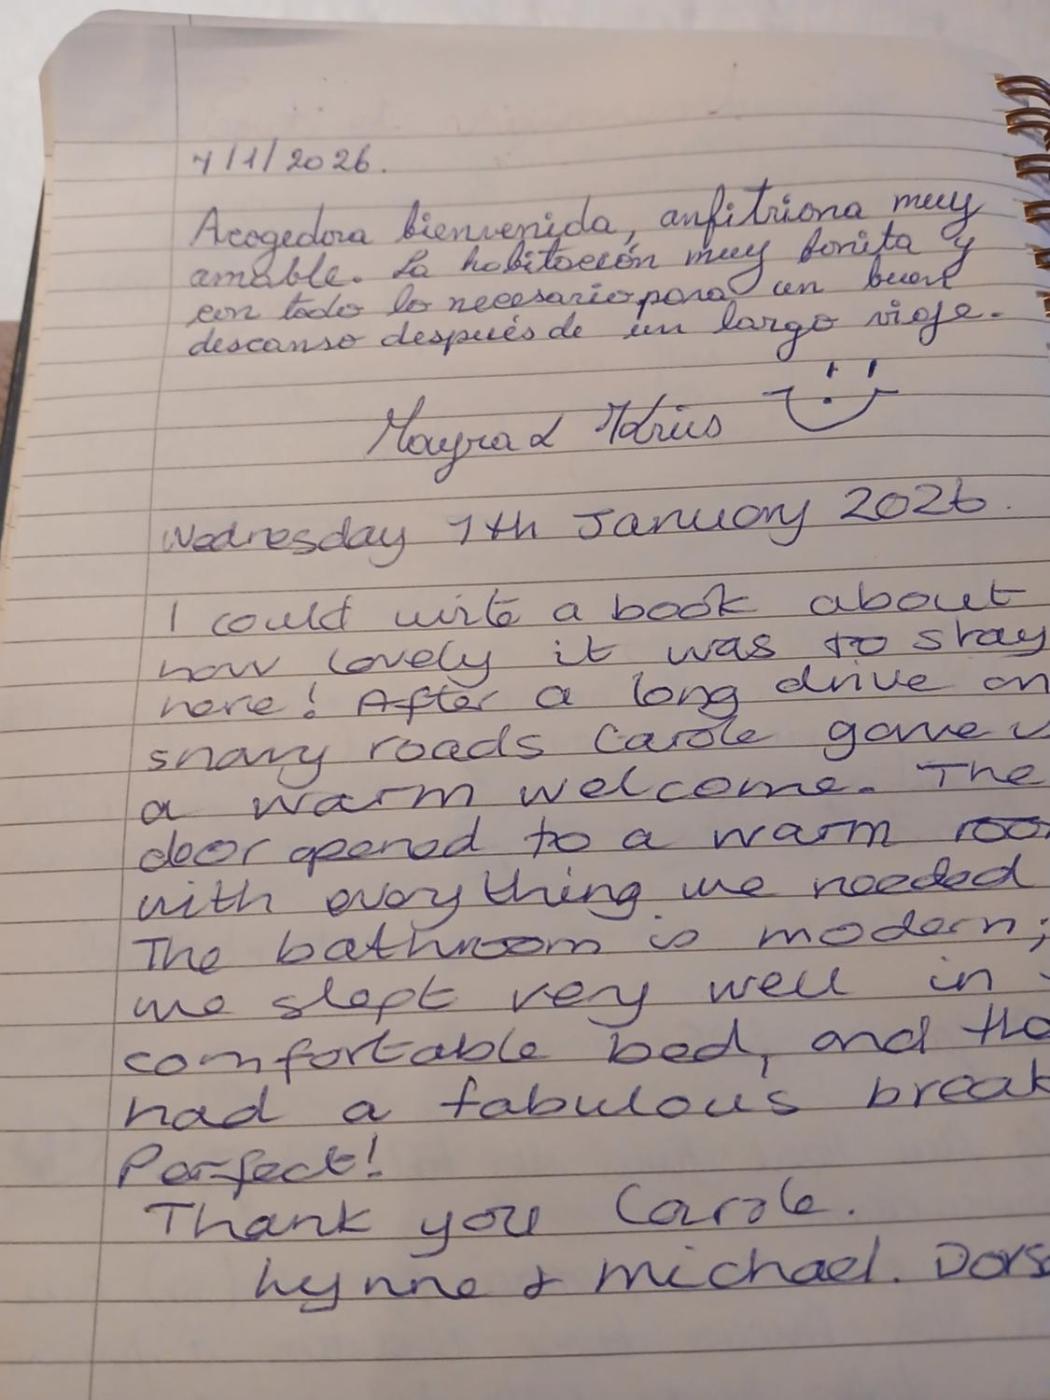 7/1/2026.
Acogedora bienvenida, anfitriona muy
amable. La habitación muy bonita y
con todo lo necesario para un buen
descanso después de un largo viaje.
Mayra &
Wednesday 7th January 2026.
I could write a book about
how lovely it was to stay
here! After a long drive on
snowy roads Carole gave
a warm welcome. The
door opened to a warm
with everything we needed
The bathroom is modern;
we slept very well in
comfortable bed, and
had a fabulous
Perfect!
Thank you Carole.
Lynne & Michael.